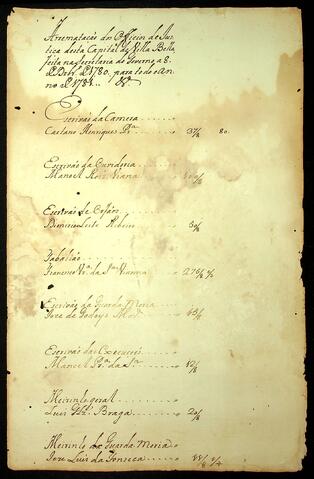 Arrematação dos Officios de Jus
tiça desta Capital de Villa Bella,
feita na Secretaria do Governo a 8.
D 1780. para todo o An
no de 1781...
Escrivão da Camera
Caetano Henriques Pra. 37/8 80.
Escrivão da Ouvidoria
Manoel Roiz Viana
Escrivão de Orfãos
Dionizio Leite Ribeiro
Tabalião
Francisco da Sa. Vianna
Escrivão da Guarda Moria
Joze de Godoys
Escrivão das Execuções
Manoel Pra. da Sa.
Meirinho geral
Luis Braga
Meirinho da Guarda Moria
Joze Luis da Fonseca